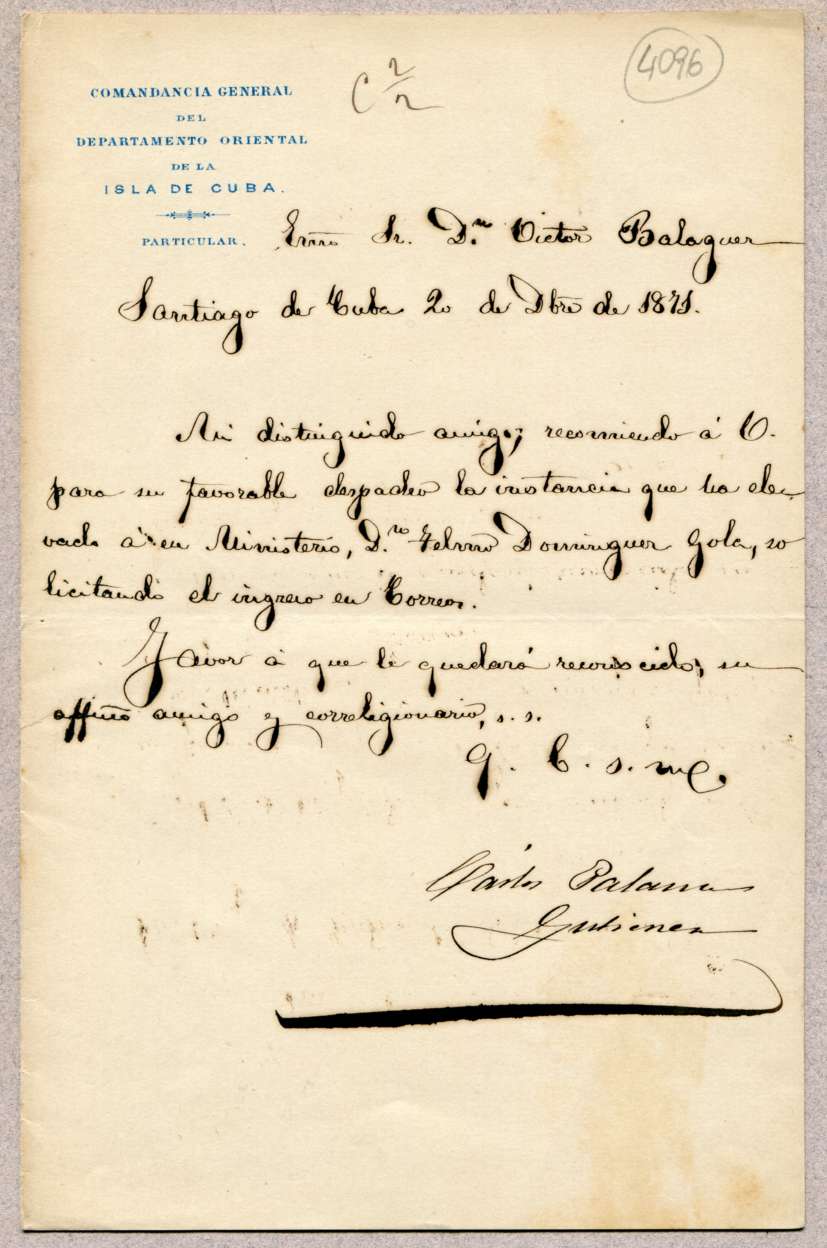 4096
C 2/2
COMANDANCIA GENERAL
DEL
DEPARTAMENTO ORIENTAL
DE LA
ISLA DE CUBA.
PARTICULAR.
Exmo Sr. Dn. Victor Balaguer
Santiago de Cuba 20 de Dbre de 1871.
Mi distinguido amigo; recomiendo á V.
para su favorable despacho la instancia que ha ele-
vado á su Ministerio, Dn. Dominguez Gola, so
licitando el ingreso en Correos.
Favor á que le quedará reconocido, su
affmo amigo y correligionario, s. s.
q. b. s. m.
Carlos Palanca
Gutierrez